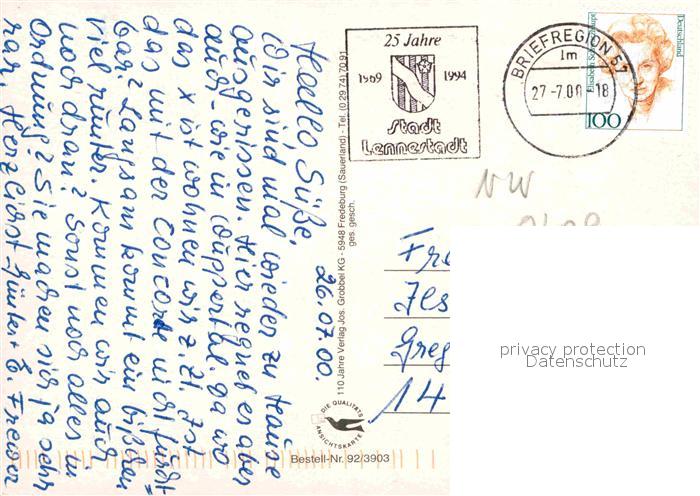 26.07.00.
Hallo Süße,
Wir sind mal wieder zu Hause
ausgerissen. Hier regnet es aber
auch - wie in Wuppertal. Da wo
das x ist wohnen wir z.Zt. Ist
das mit der Concorde nicht furcht-
bar? Langsam kommt ein bißchen
viel runter. Kommen wir auch
noch dran? Sonst noch alles in
Ordnung? Sie machen sich ja sehr
rar. Herzlichst Günter + E.
110 Jahre Verlag Jos. Grobbel KG - 5948 Fredeburg (Sauerland) - Tel. (0 29 74) 70 91
ges. gesch.
DIE QUALITÄTS
ANSICHTSKARTE
Bestell-Nr. 92/3903
25 Jahre
1969 1994
Stadt
Lennestadt
BRIEFREGION 57
1m
27.-7.00-18
Deutschland
100
NW
Fre
Jes
Greg
14
privacy protection
Datenschutz